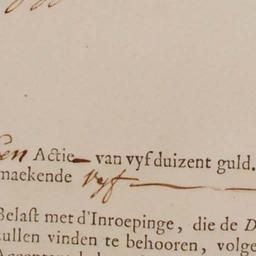 een Actie van vyf duizent guld.
maekende vyf
Belast met d'Inroepinge, die de D
zullen vinden te behooren, volge